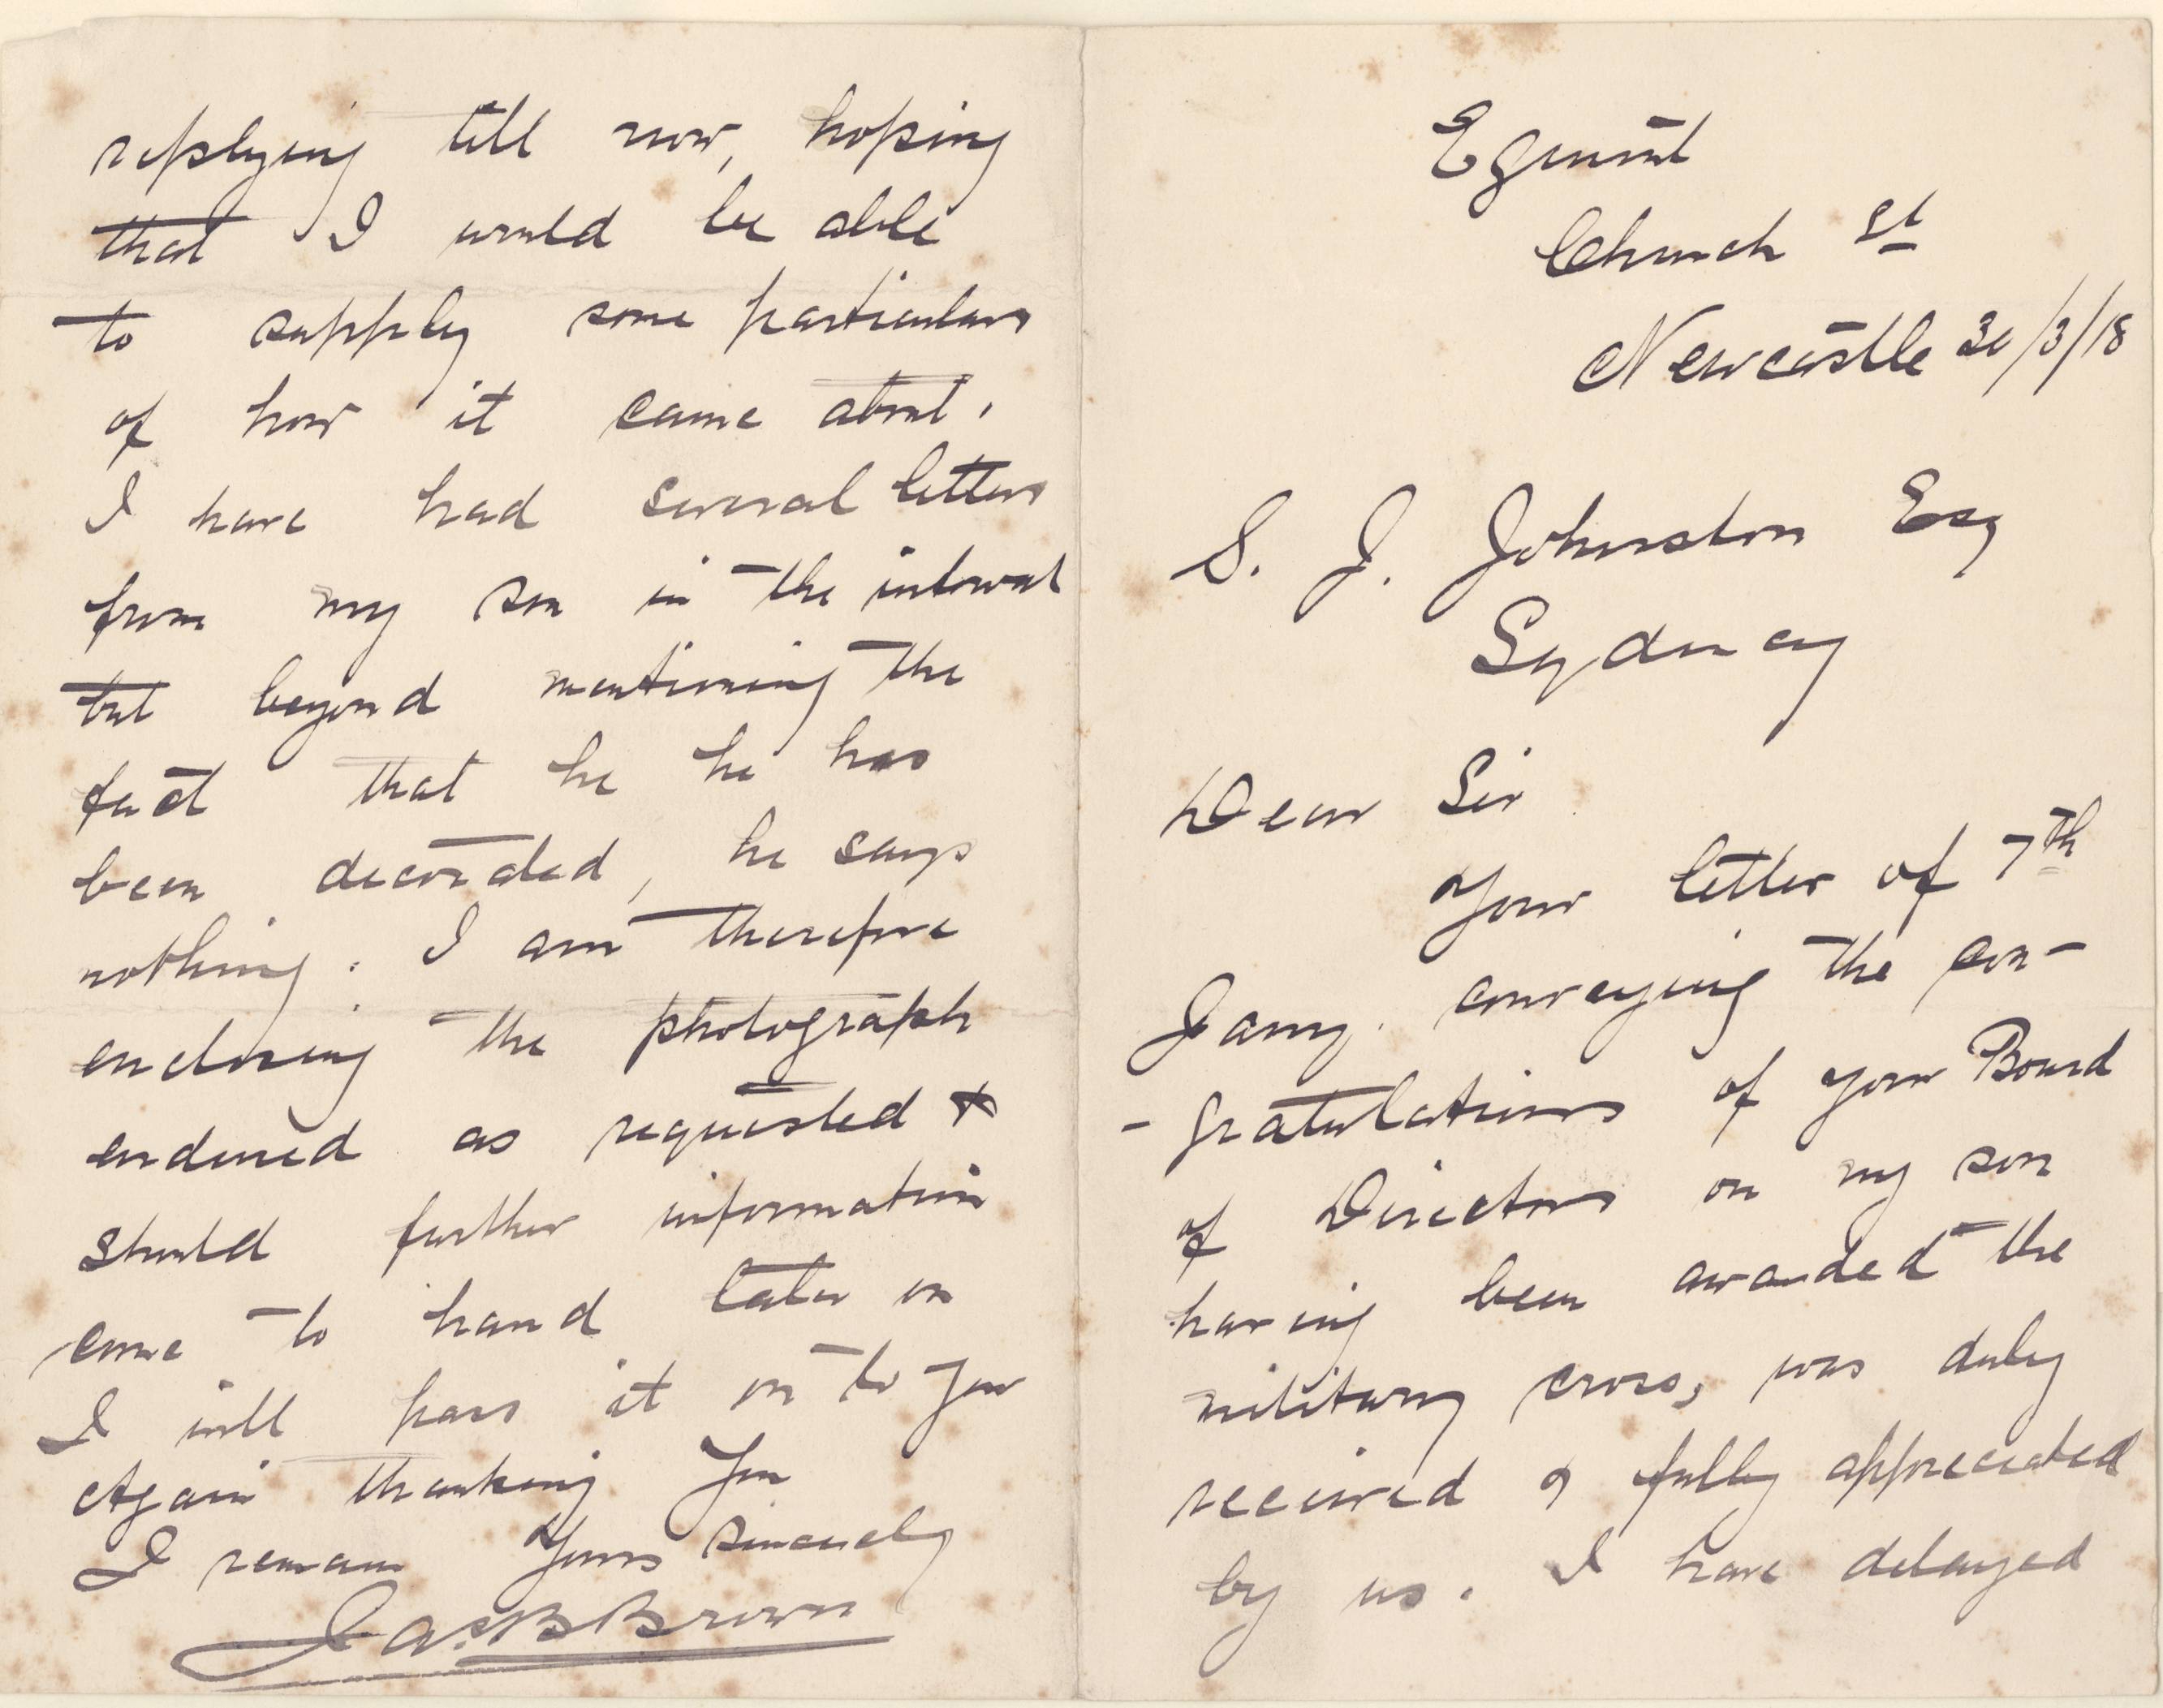 Egmont
Church St
Newcastle 30/3/18
S. J. Johnston Esq
Sydney
Dear Sir
Your letter of 7th
Jany. conveying the con-
-gratulations of your Board
of Directors on my son
having been awarded the
military cross, was duly
received & fully appreciated
by us. I have delayed
replying till now, hoping
that I would be able
to supply some particulars
of how it came about.
I have had several letters
from my son in the interval
but beyond mentioning the
fact that he he has
been decorated, he says
nothing. I am therefore
enclosing the photograph
endorsed as requested &
should further information
come to hand later on
I will pass it on to you
Again thanking you
I remain Yours sincerely
Jas. B Brown